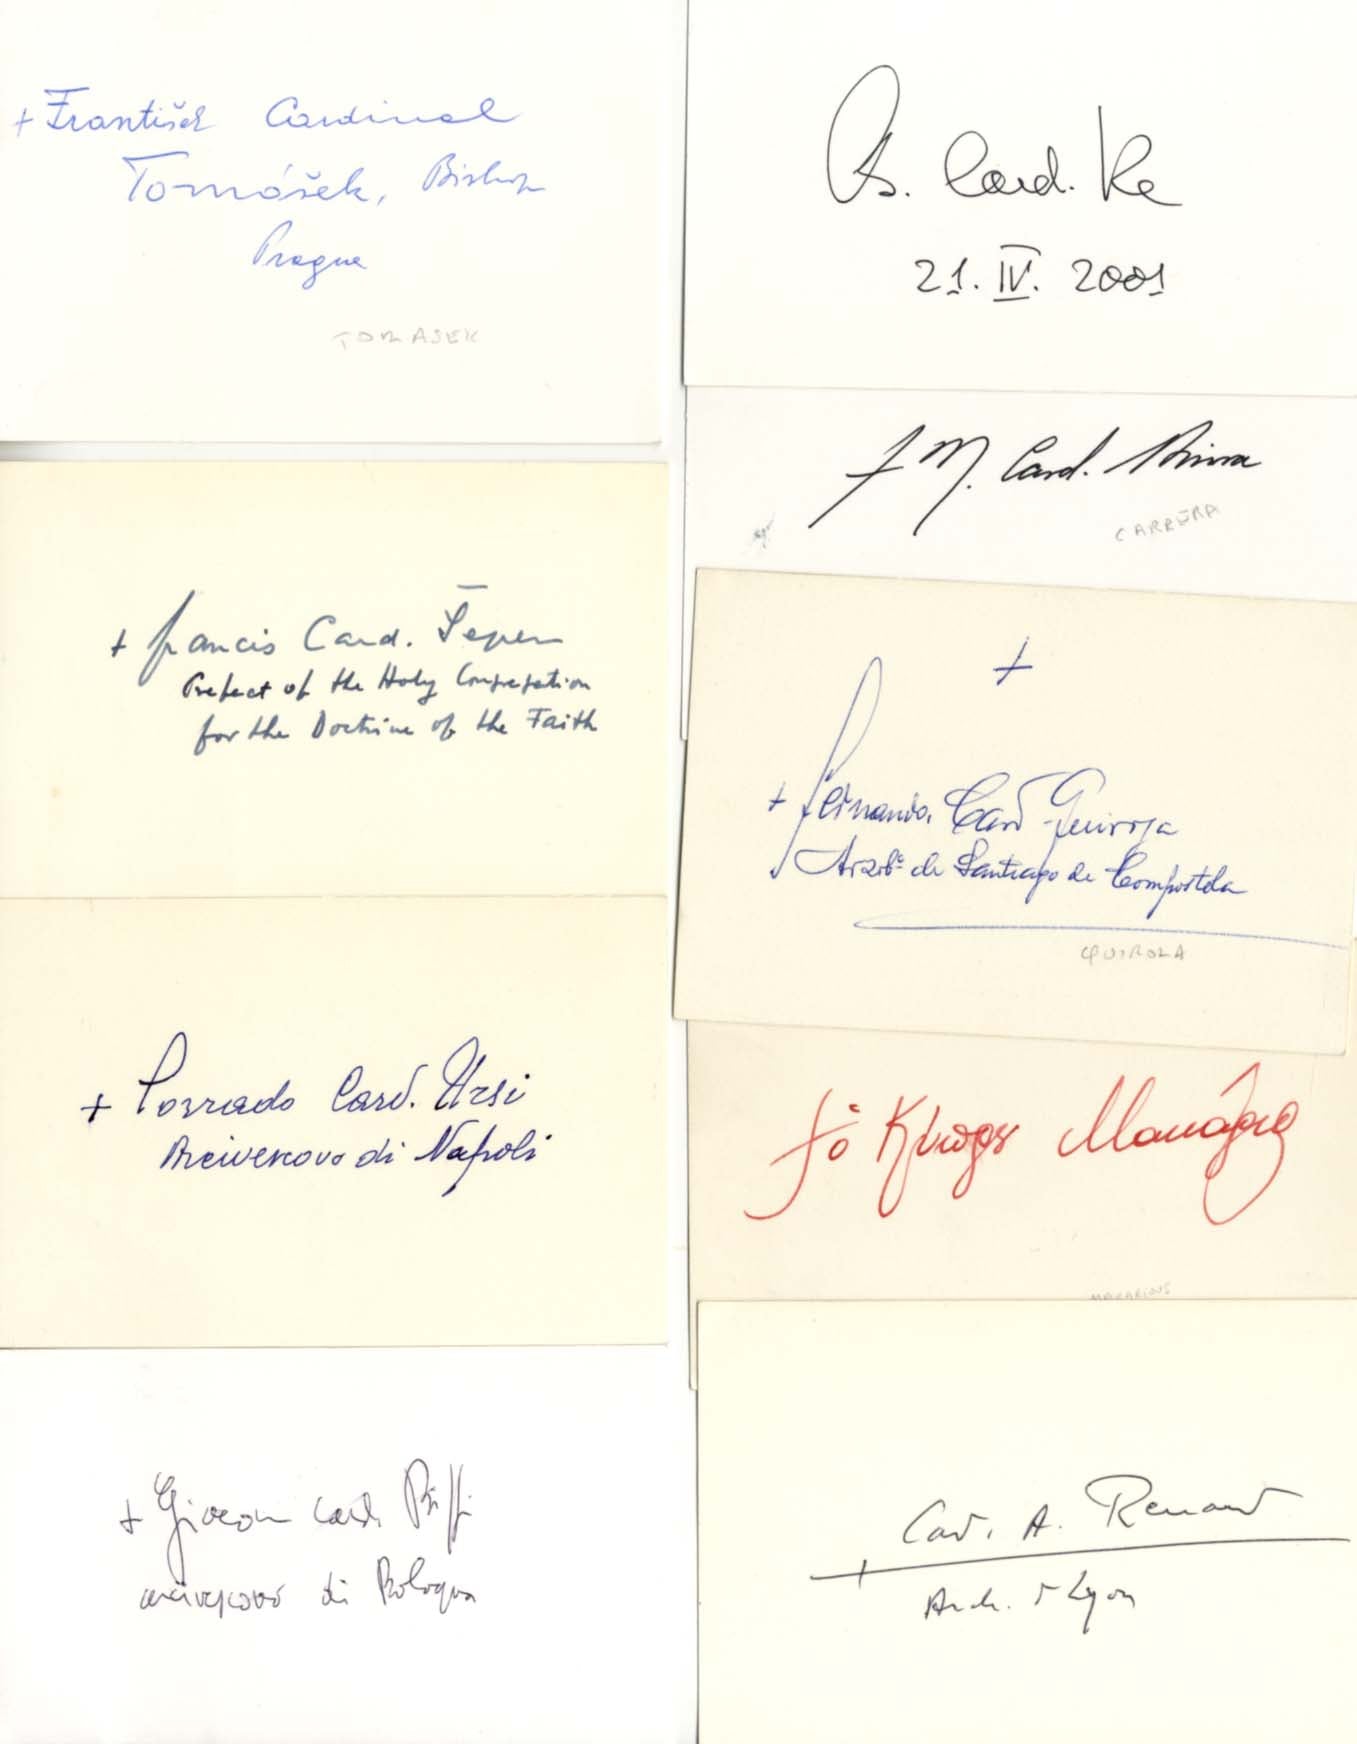 + František Cardinal
Tomášek, Bishop
Prague
TOMASEK
+ Francis Card. Šeper
Prefect of the Holy Congregation
for the Doctrine of the Faith
+ Corrado Card. Ursi
Arcivescovo di Napoli
+ Giacomo Card. Biffi
arcivescovo di Bologna
B. Card. Re
21. IV. 2001
+ N. Card. Rivera
CARRERA
+
+ Fernando, Card Quiroga
Arzobº de Santiago de Compostela
QUIROLA
+ ὁ Κύπρου Μακάριος
MAKARIOS
Card. A. Renard
+
Arch. Lyon